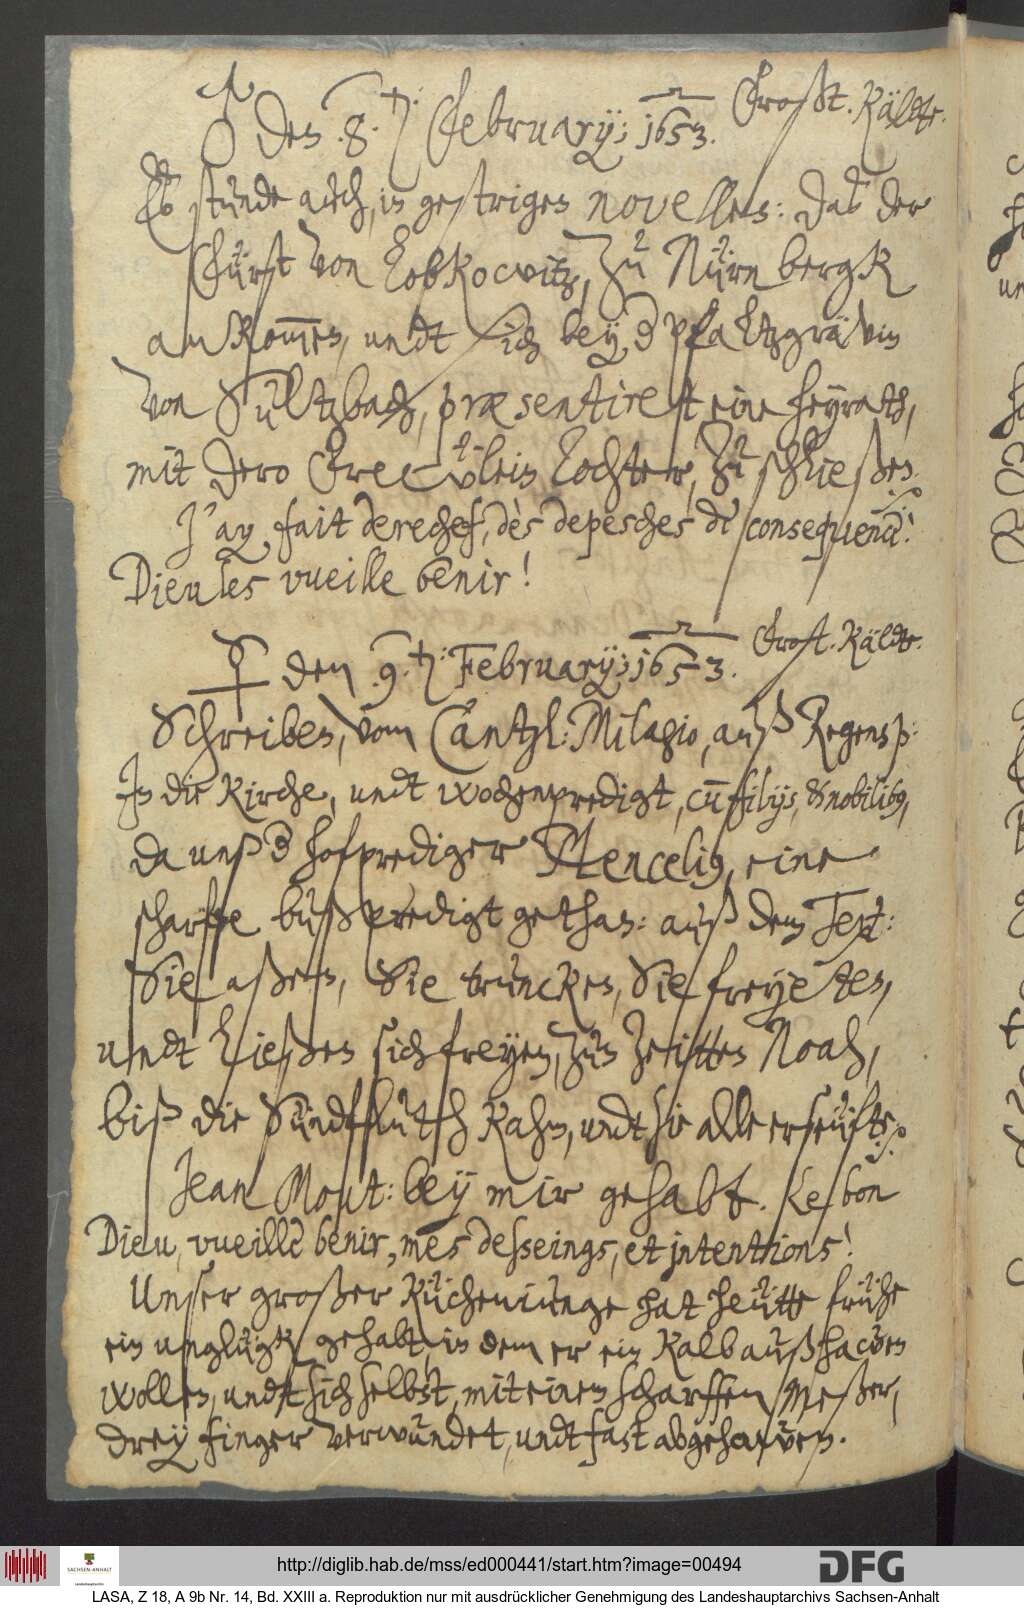 ♂ den .8.ten: February; 1653. Frost. Kälde.
Es stunde auch, in gestrigen novellen: Daß der
Fürst von Lobkowitz, zu Nürnbergk
ankommen, undt sich bey der Pfaltzgrävin
von Sultzbach, præsentiret eine heyrath,
mit dero Frewlein Tochter, zu schließen.
J'ay fait derechef, dès depesches de consequence.
Dieu les vueille benir!
☿ den .9.ten: February; 1653. Frost. Kälde.
Schreiben, vom Cantzl: Milagio, auß Regensp:
In die Kirche, undt wochenpredigt, cum filijs, & nobilibus,
da unß der hofprediger Mencelig, eine
scharffe bußpredigt gethan: auß dem Text:
Sie aßen, Sie truncken, Sie freyeten,
undt ließen sich freyen, zun Zeitten Noah,
biß die Sündfluth kahm, undt sie alle erseufte.
Jean Mout: bey mir gehabt. Le bon
Dieu, vueille benir, mes desseings, et intentions!
Unser großer Küchenjunge hat heütte frühe
ein unglügk gehabt, in dem er ein Kalb außhawen
wollen, undt sich selbst, mit einem scharffen Meßer,
drey finger verwundet, undt fast abgehawen.
http://diglib.hab.de/mss/ed000441/start.htm?image=00494
SACHSEN-ANHALT
DFG
LASA, Z 18, A 9b Nr. 14, Bd. XXIII a. Reproduktion nur mit ausdrücklicher Genehmigung des Landeshauptarchivs Sachsen-Anhalt